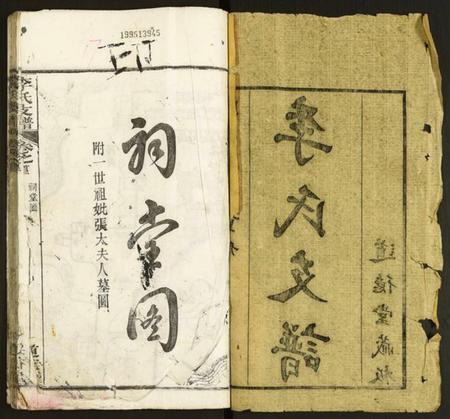 李氏支譜
道德堂藏板
199513945
印
祠堂圖
附一世祖妣張太夫人墓圖
李氏支譜
卷之首
祠堂圖